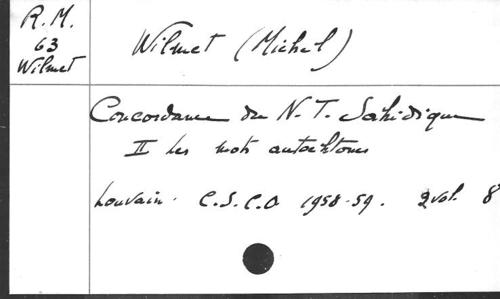 R. M.
63
Wilmet
Wilmet (Michel)
Concordance du N. T. Sahidique
II Les mots autochtones
Louvain. C.S.C.O 1958-59. 2 vol. 8